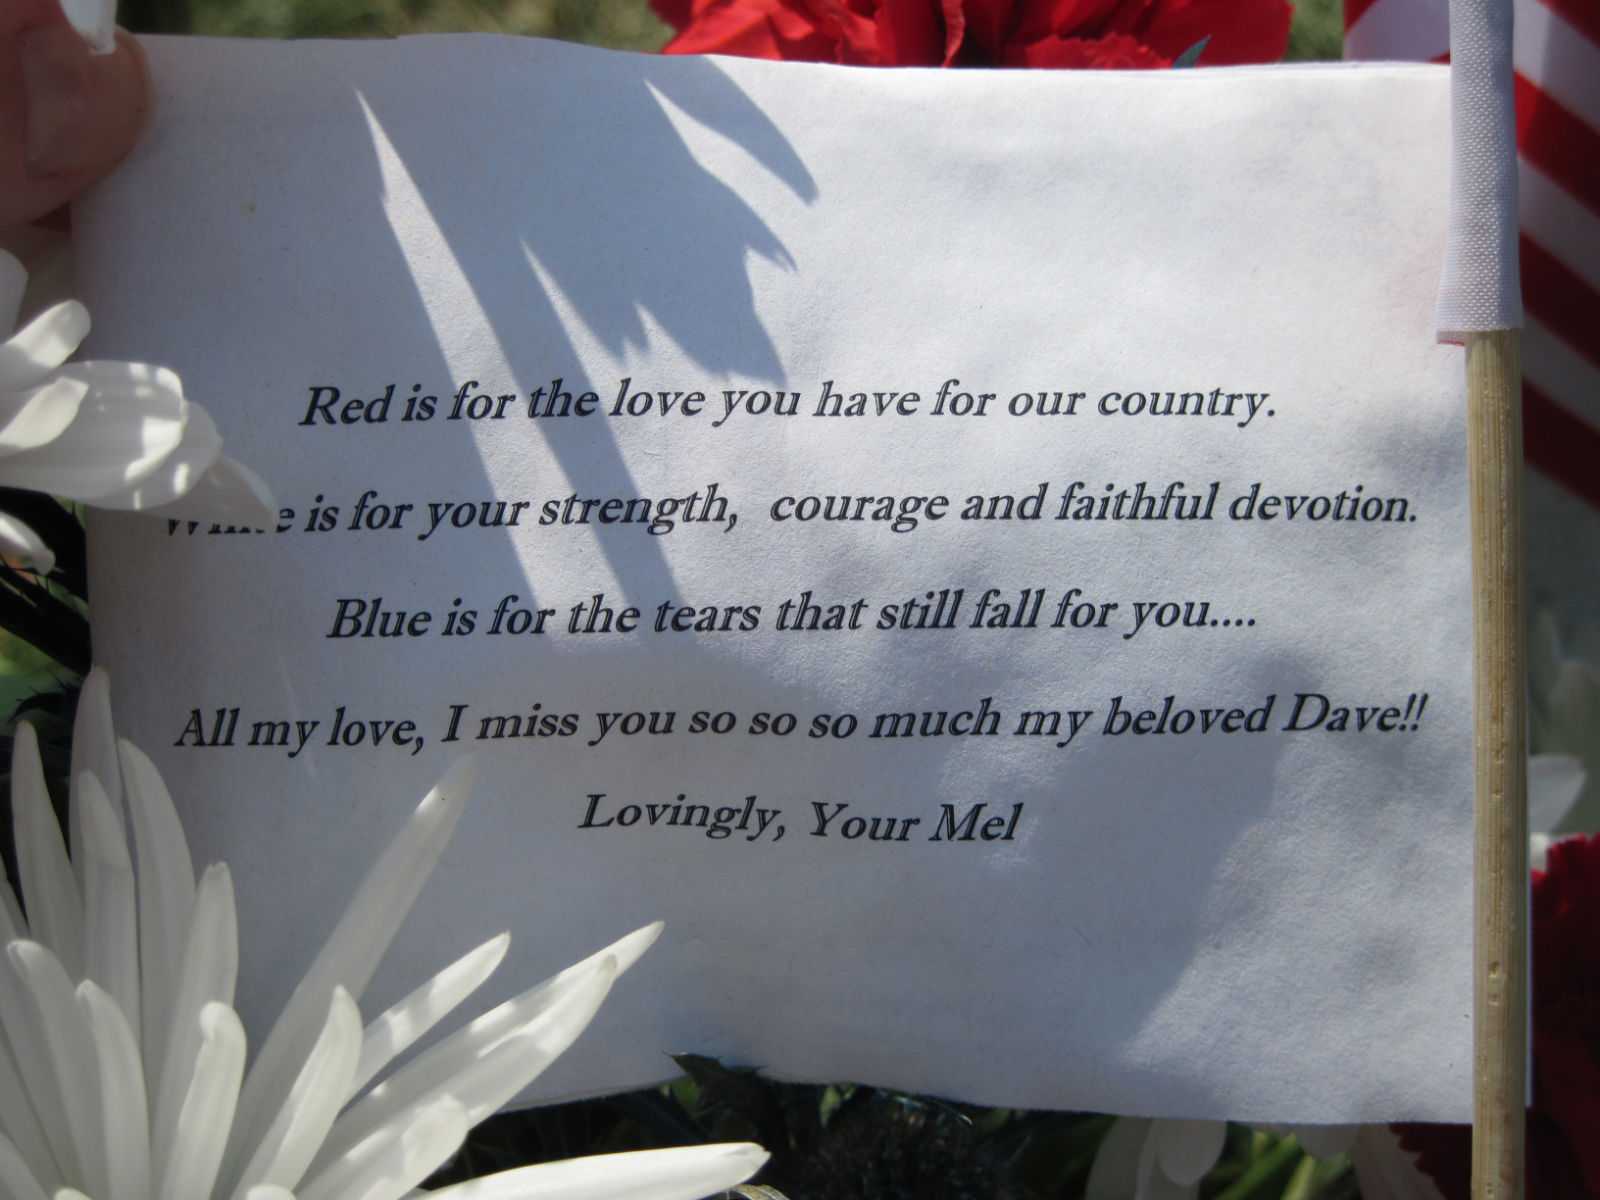 Red is for the love you have for our country.
White is for your strength, courage and faithful devotion.
Blue is for the tears that still fall for you....
All my love, I miss you so so so much my beloved Dave!!
Lovingly, Your Mel